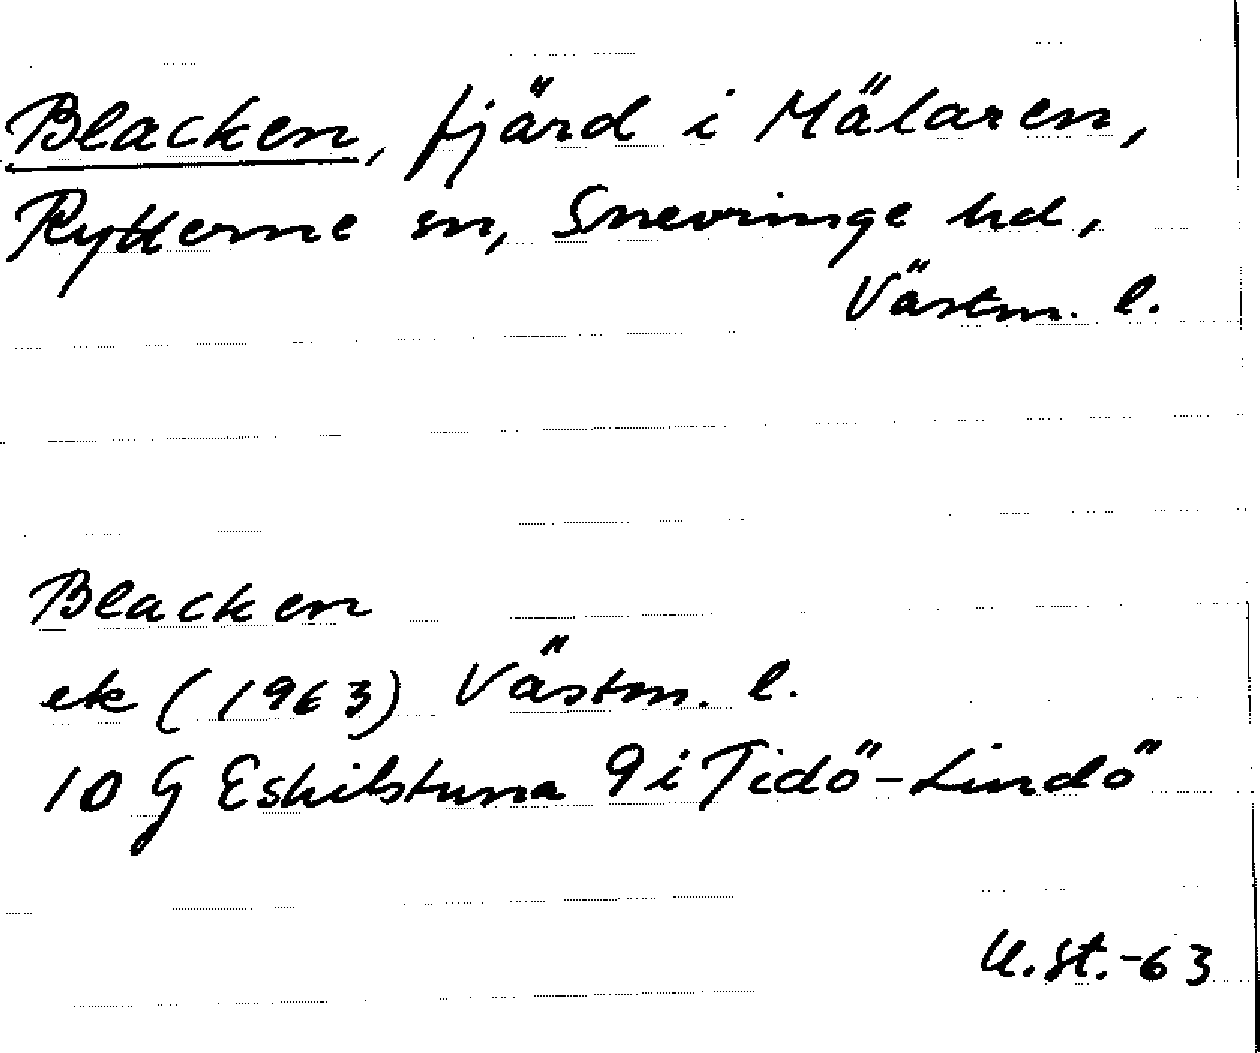 Blacken, fjärd i Mälaren,
Rytterne sn, Snevringe hd,
Västm. l.
Blacken
ek (1963) Västm. l.
10 G Eskilstuna 9 i Tidö-Lindö
U.St.-63